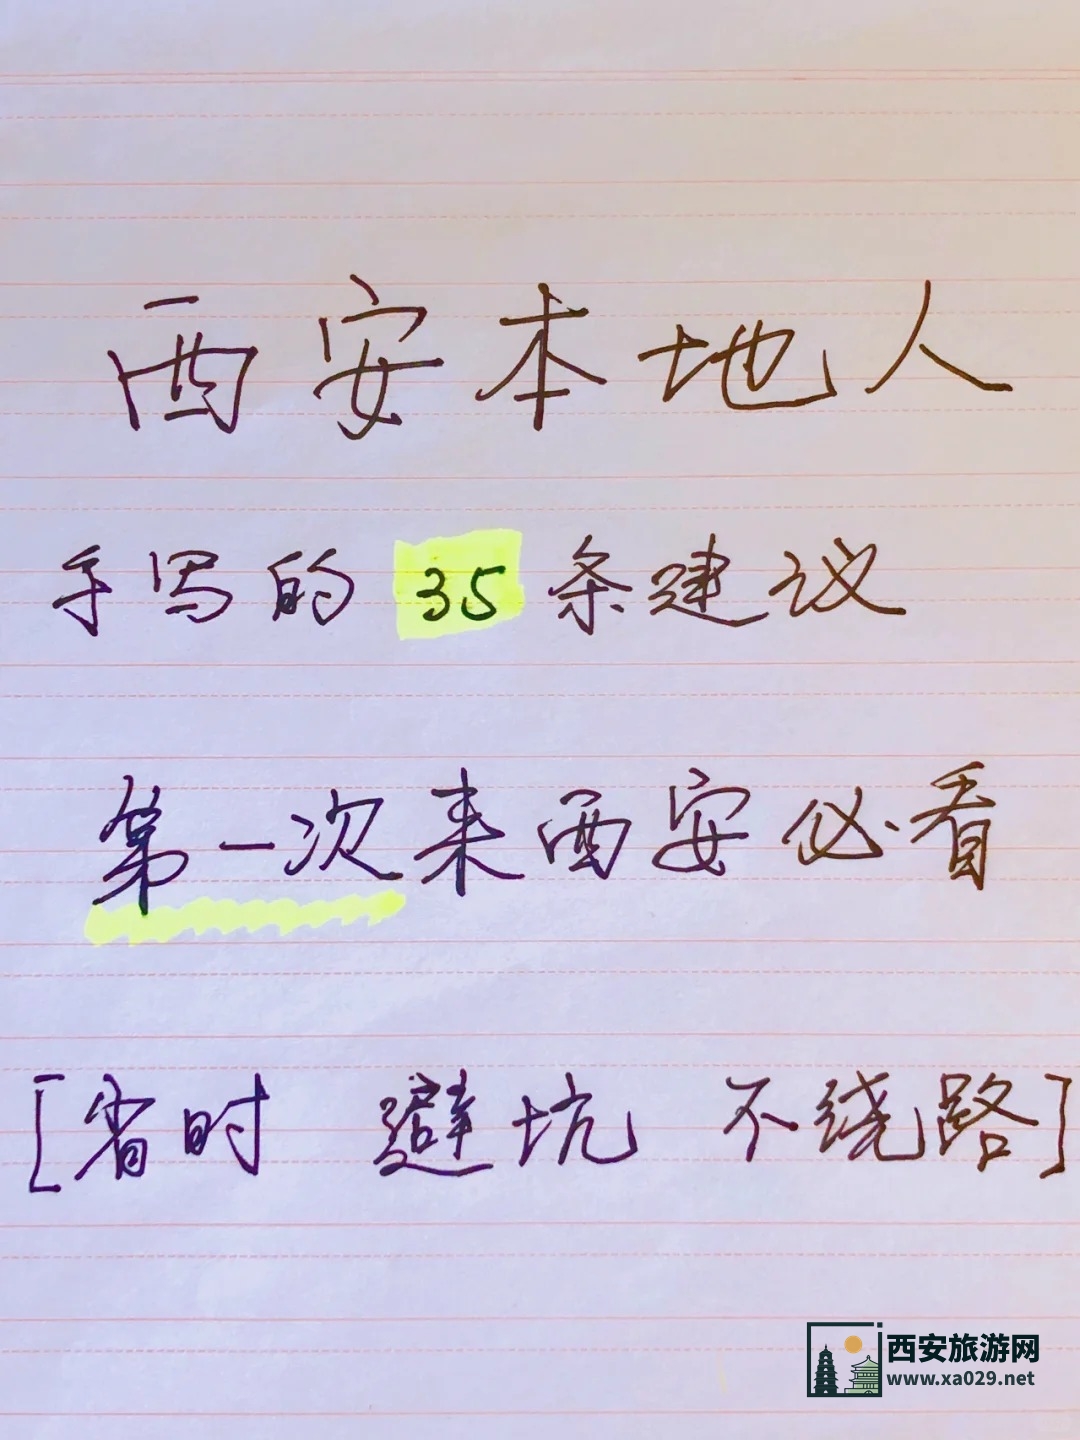 西安本地人
手写的 35 条建议
第一次来西安必看
[省时 避坑 不绕路]
西安旅游网
www.xa029.net